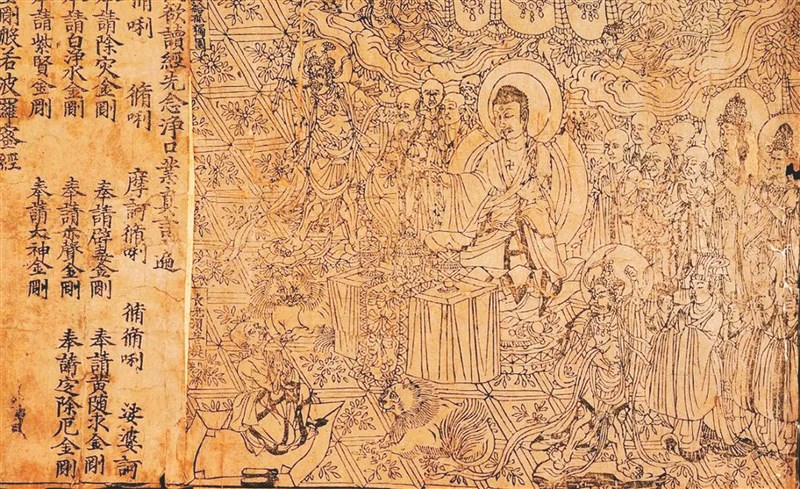 孤獨園
長老須菩提
欲讀經先念淨口業真言遍
脩唎 脩唎 摩訶脩唎 脩脩唎 娑婆訶
奉請除灾金剛 奉請辟毒金剛 奉請黃随求金剛
奉請白淨水金剛 奉請赤聲金剛 奉請定除厄金剛
奉請紫賢金剛 奉請大神金剛
剛般若波羅蜜經